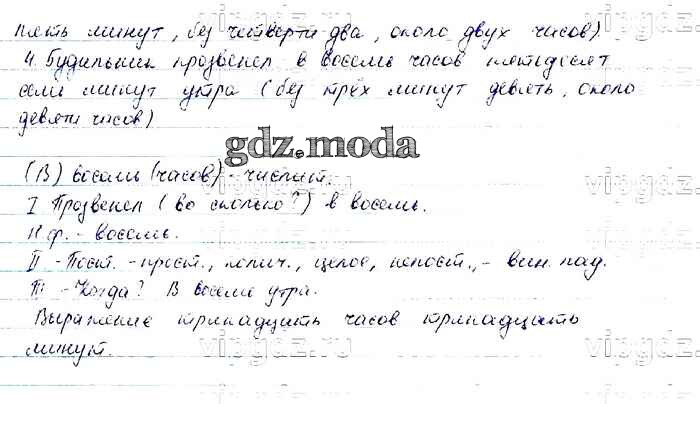 пять минут, без четверти два, около двух часов).
4. Будильник прозвенел в восемь часов пятьдесят
семь минут утра (без трёх минут девять, около
девяти часов)
gdz.moda
(В) восемь (часов) - числит.
I Прозвенел (во сколько?) в восемь.
Н.ф. - восемь.
II - Пост. - прост., колич., целое, непост., - вин. пад.
III - Когда? В восемь утра.
Выражение тринадцать часов тринадцать
минут.
vipgdz.ru